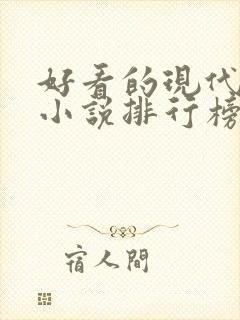 好看的現代
小說排行榜
宿人間